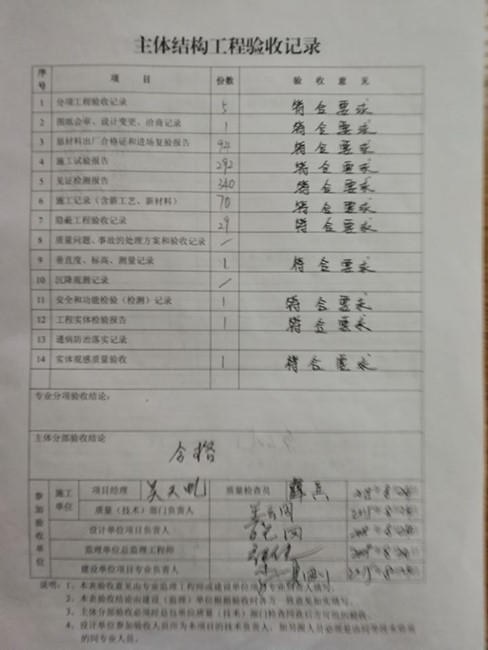 主体结构工程验收记录
序号 项目 份数 验收意见
1 分项工程验收记录 5 符合要求
2 图纸会审、设计变更、洽商记录 1 符合要求
3 原材料出厂合格证和进场复验报告 94 符合要求
4 施工试验报告 292 符合要求
5 见证检测报告 340 符合要求
6 施工记录（含新工艺、新材料） 70 符合要求
7 隐蔽工程验收记录 29 符合要求
8 质量问题、事故的处理方案和验收记录 /
9 垂直度、标高、测量记录 1 符合要求
10 沉降观测记录 /
11 安全和功能检验（检测）记录 1 符合要求
12 工程实体检验报告 1 符合要求
13 通病防治落实记录
14 实体观感质量验收 1 符合要求
专业分项验收结论：
主体分部验收结论
合格
参加验收单位
施工单位 项目经理 质量检查员
质量（技术）部门负责人
设计单位项目负责人
监理单位总监理工程师
建设单位项目专业负责人
说明：1、本表验收意见由专业监理工程师或建设单位项目专业负责人填写。
2、本表验收结论由建设（监理）单位根据验收时各方一致意见如实填写。
3、主体分部验收必须经总包单位质量（技术）部门检查同意后方可组织验收。